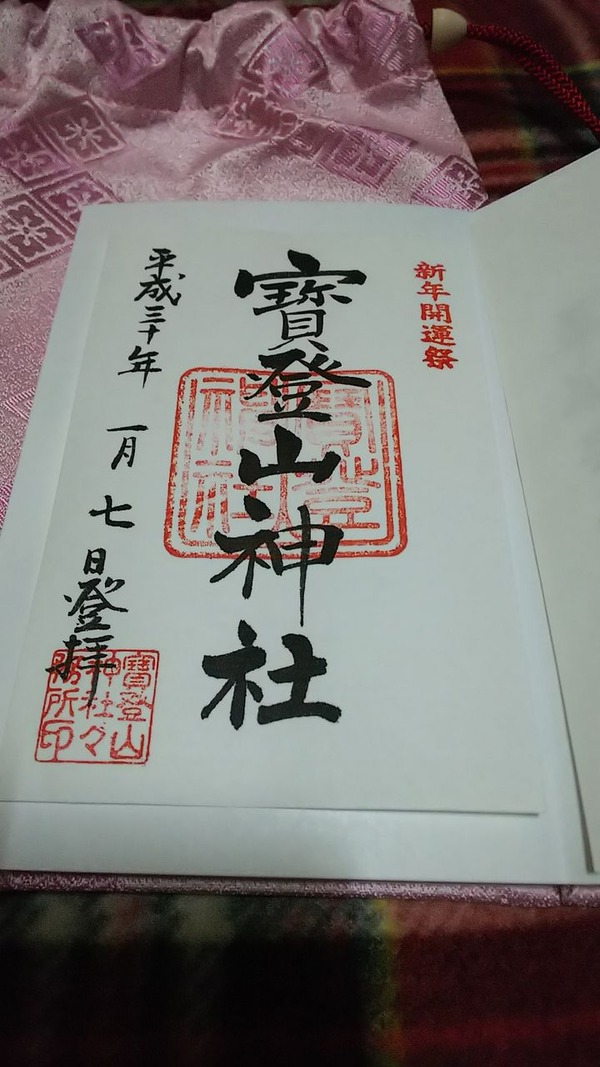 新年開運祭
寳登山神社
寳登山
神社
平成三十年 一月 七日登拝
寳登山
神社々
務所印